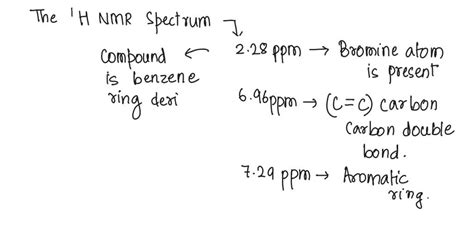 The ¹H NMR Spectrum
Compound ← 2.28 ppm → Bromine atom
is benzene is present
ring deri 6.96ppm → (C=C) carbon
carbon double
bond.
7.29 ppm → Aromatic
ring.